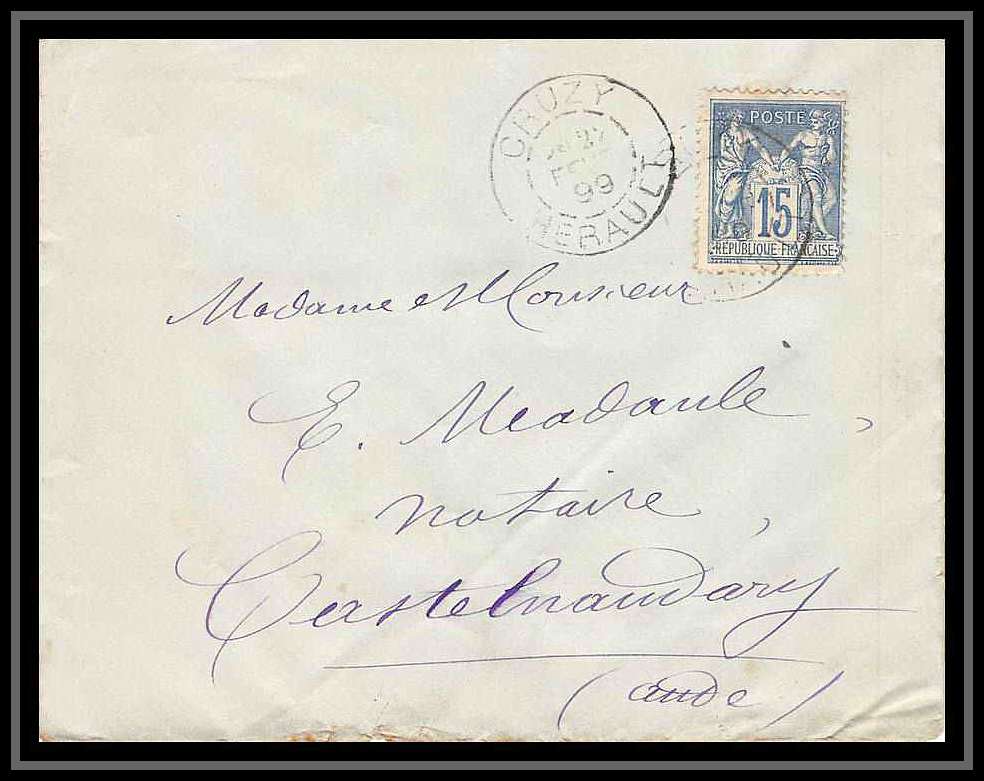 CRUZY
22
99
HERAULT
POSTE
15
RÉPUBLIQUE FRANÇAISE
Madame et Monsieur
E. Meadaule,
notaire,
Castelnaudary
(aude)